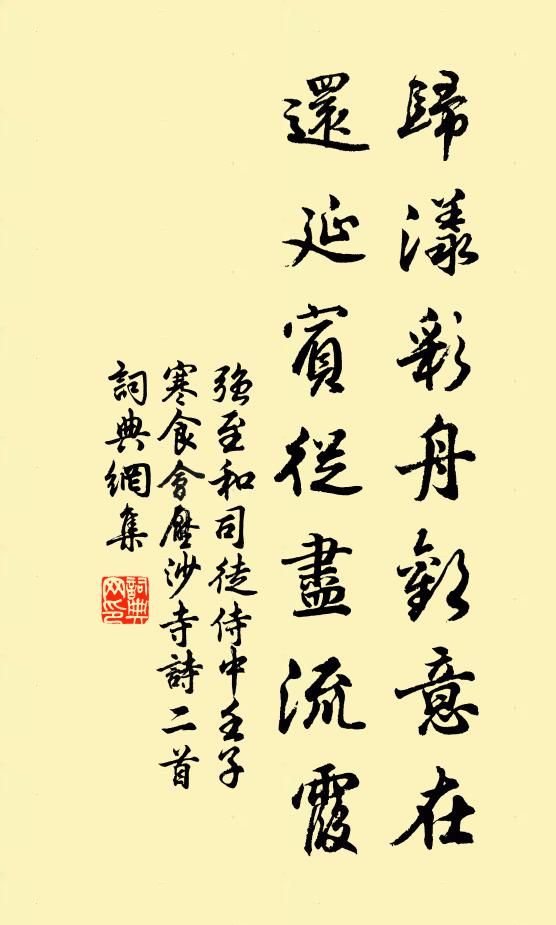 歸漾彩舟歡意在
還延賓從盡流霞
強至和司徒侍中壬子
寒食會壓沙寺詩二首
詞典網集
詞典網印